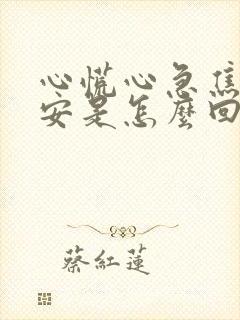 心慌心急焦
安是怎麼回
蔡紅蓮